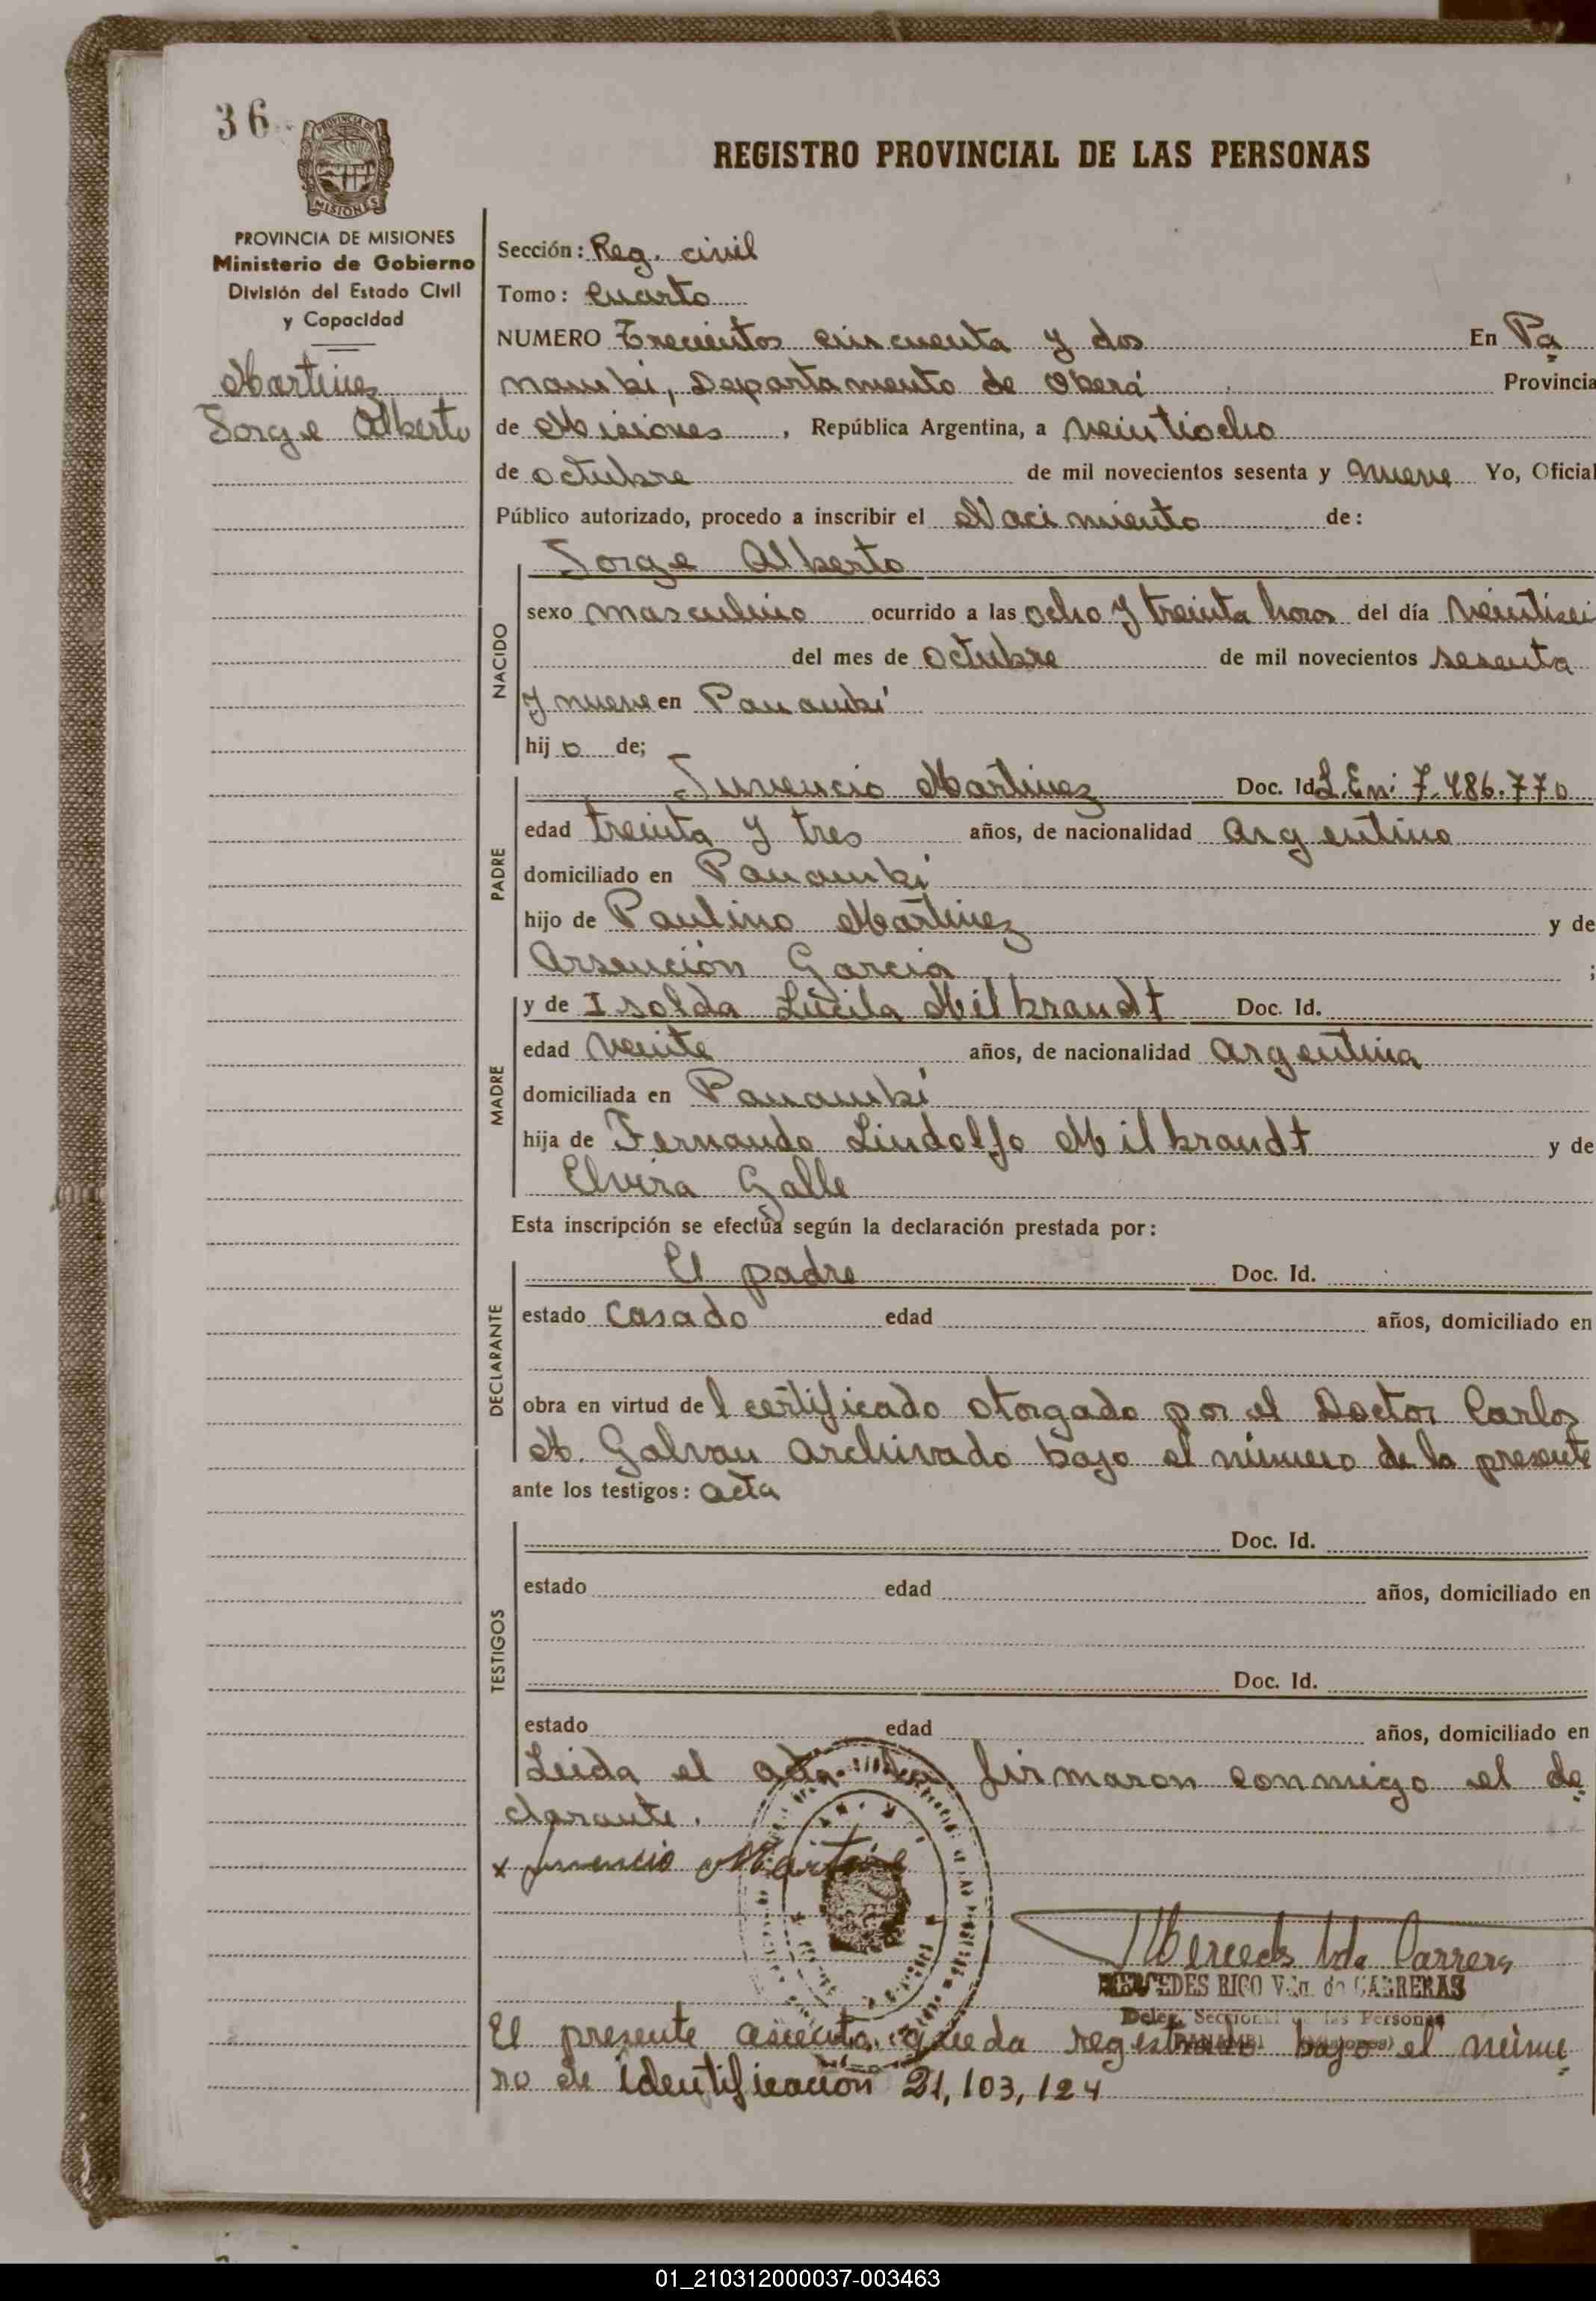 36
PROVINCIA DE
MISIONES
REGISTRO PROVINCIAL DE LAS PERSONAS
PROVINCIA DE MISIONES
Ministerio de Gobierno
División del Estado Civil
y Capacidad
Martinez
Jorge Alberto
Sección: Reg. civil
Tomo: Cuarto
NUMERO Trecientos cincuenta y dos En Pa
nambí, Departamento de Oberá Provincia
de Misiones, República Argentina, a veintiocho
de octubre de mil novecientos sesenta y nueve Yo, Oficial
Público autorizado, procedo a inscribir el Nacimiento de:
Jorge Alberto
NACIDO
sexo masculino ocurrido a las ocho y treinta horas del día veintisei
del mes de octubre de mil novecientos sesenta
y nueve en Panambí
hijo de;
PADRE
Juvencio Martinez Doc. Id. L.En: 7.486.770
edad treinta y tres años, de nacionalidad argentino
domiciliado en Panambí
hijo de Paulino Martinez y de
Arsención Garcia ;
MADRE
y de Isolda Lucila Milbrandt Doc. Id.
edad veinte años, de nacionalidad argentina
domiciliada en Panambí
hija de Fernando Lindolfo Milbrandt y de
Elvira Galle
Esta inscripción se efectúa según la declaración prestada por:
DECLARANTE
El padre Doc. Id.
estado casado edad años, domiciliado en
obra en virtud del certificado otorgado por el Doctor Carlos
M. Galvan archivado bajo el número de la presente
ante los testigos: acta
TESTIGOS
Doc. Id.
estado edad años, domiciliado en
Doc. Id.
estado edad años, domiciliado en
Leida el acta la firmaron conmigo el de
clarante.
x Juvencio Martinez
Mercedes Vda Carreras
MERCEDES RICO Vda. de CARRERAS
Deleg. Seccional de las Personas
PANAMBI
El presente asiento queda registrado bajo el núme
ro de identificación 21,103,124
01_210312000037-003463